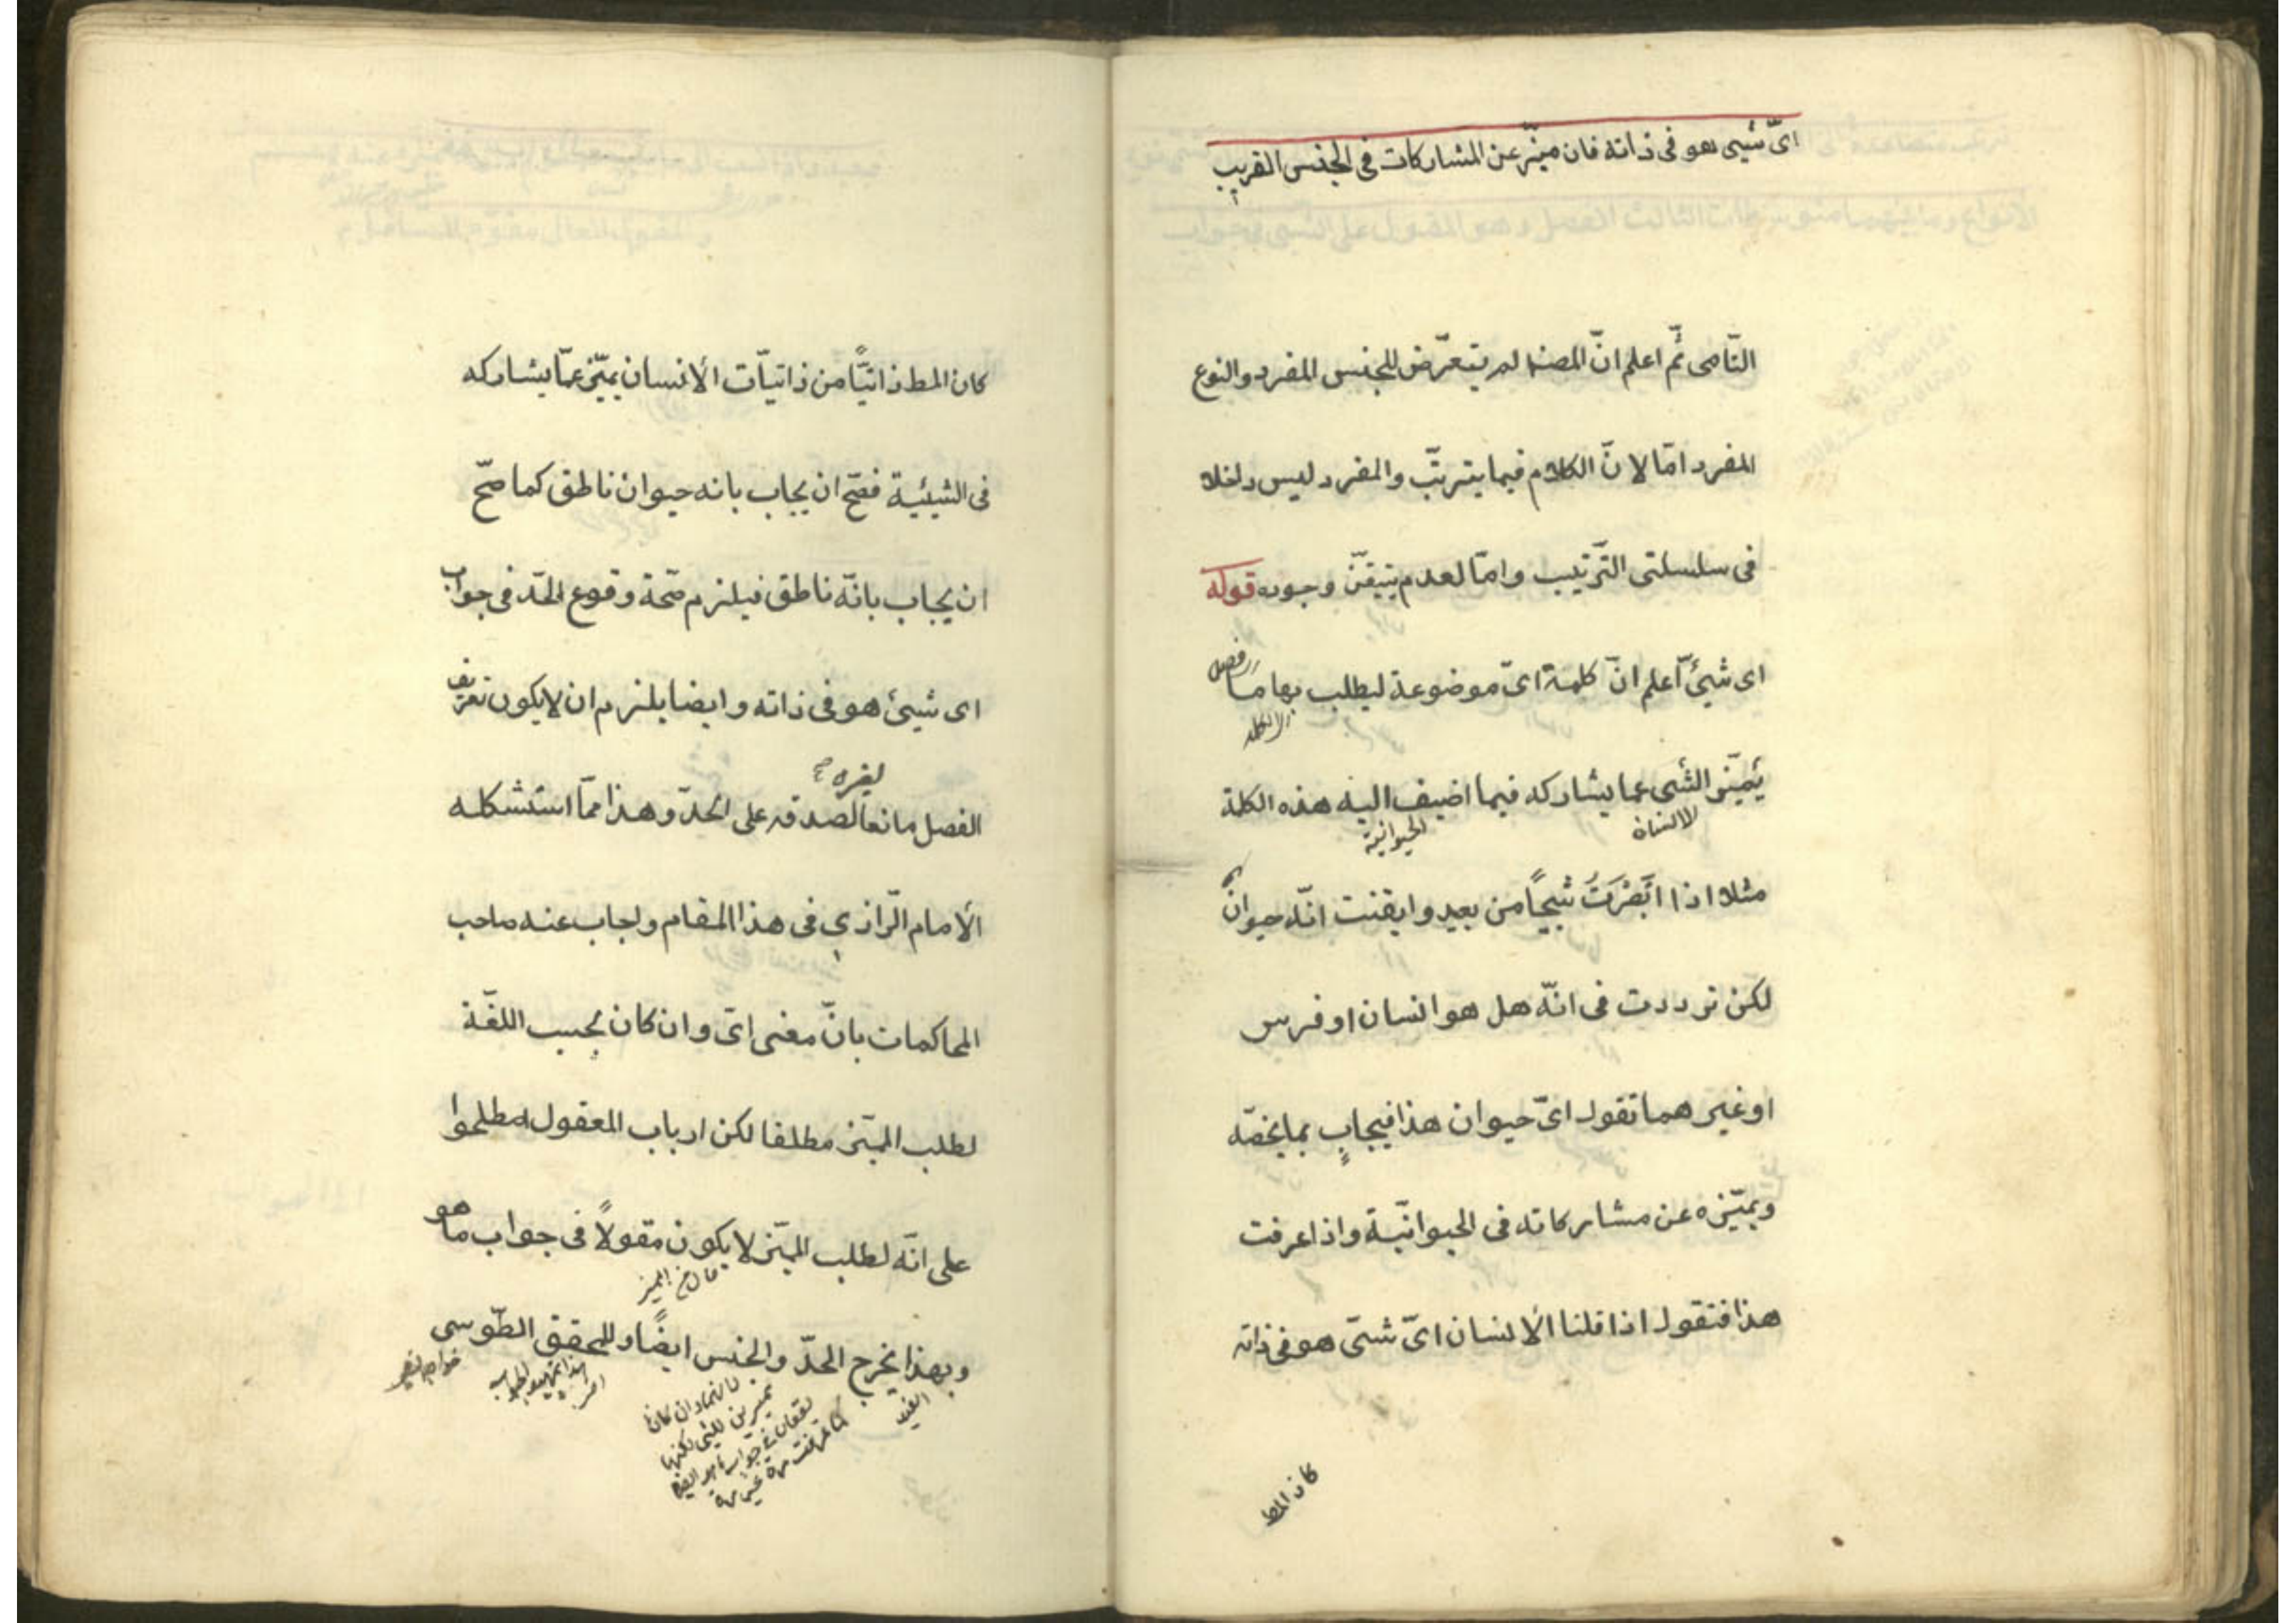 اىّ شيئ هو فى ذاته فان ميّز عن المشاركات فى الجنس القريب
النّامى ثمّ اعلم انّ المصنف لم يتعرّض للجنس المفرد والنوع
المفرد امّا لانّ الكلام فيما يترتّب والمفرد ليس داخلا
فى سلسلتى التّرتيب وامّا لعدم تيقّن وجوده قوله
اى شيئ اعلم انّ كلمة اىّ موضوعة ليطلب بها ما
فصل
يميّز الشى عما يشاركه فيما اضيف اليه هذه الكلمة
الانسان
الحيوانية
مثلا اذا ابَصْرَتَ شبحًا من بعيد وايقنت انّه حيوان
لكن ترددت فى انّه هل هو انسان او فرس
او غير هما تقول اىّ حيوان هذا فيجاب بما يخصّه
ويميّزه عن مشاركاته فى الحيوانيّة واذا عرفت
هذا فنقول اذا قلنا الانسان اىّ شئ هو فى ذاته
كان المط
كان المط ذاتيًّا من ذاتيّات الانسان يميّز عمّا يشاركه
فى الشيئية فصّح ان يجاب بانه حيوان ناطق كما صّح
ان يجاب بانّه ناطق فيلزم صّحة وقوع الحّد فى جواب
اى شيئ هو فى ذاته وايضا يلزم ان لا يكون تعريف
لغيره صح
الفصل مانعا لصدقه على الحدّ وهذا ممّا استشكله
الامام الرّازي فى هذا المقام واجاب عنه صاحب
المحاكمات بانّ معنى اىّ وان كان بحسب اللغّة
لطلب المميّز مطلقا لكن ارباب المعقول اصطلحوا
على انّه لطلب المميّز لا يكون مقولاً فى جواب ما هو
وبهذا يخرج الحدّ والجنس ايضًا وللمحقق الطّوسى
القيد
خواجه نصير